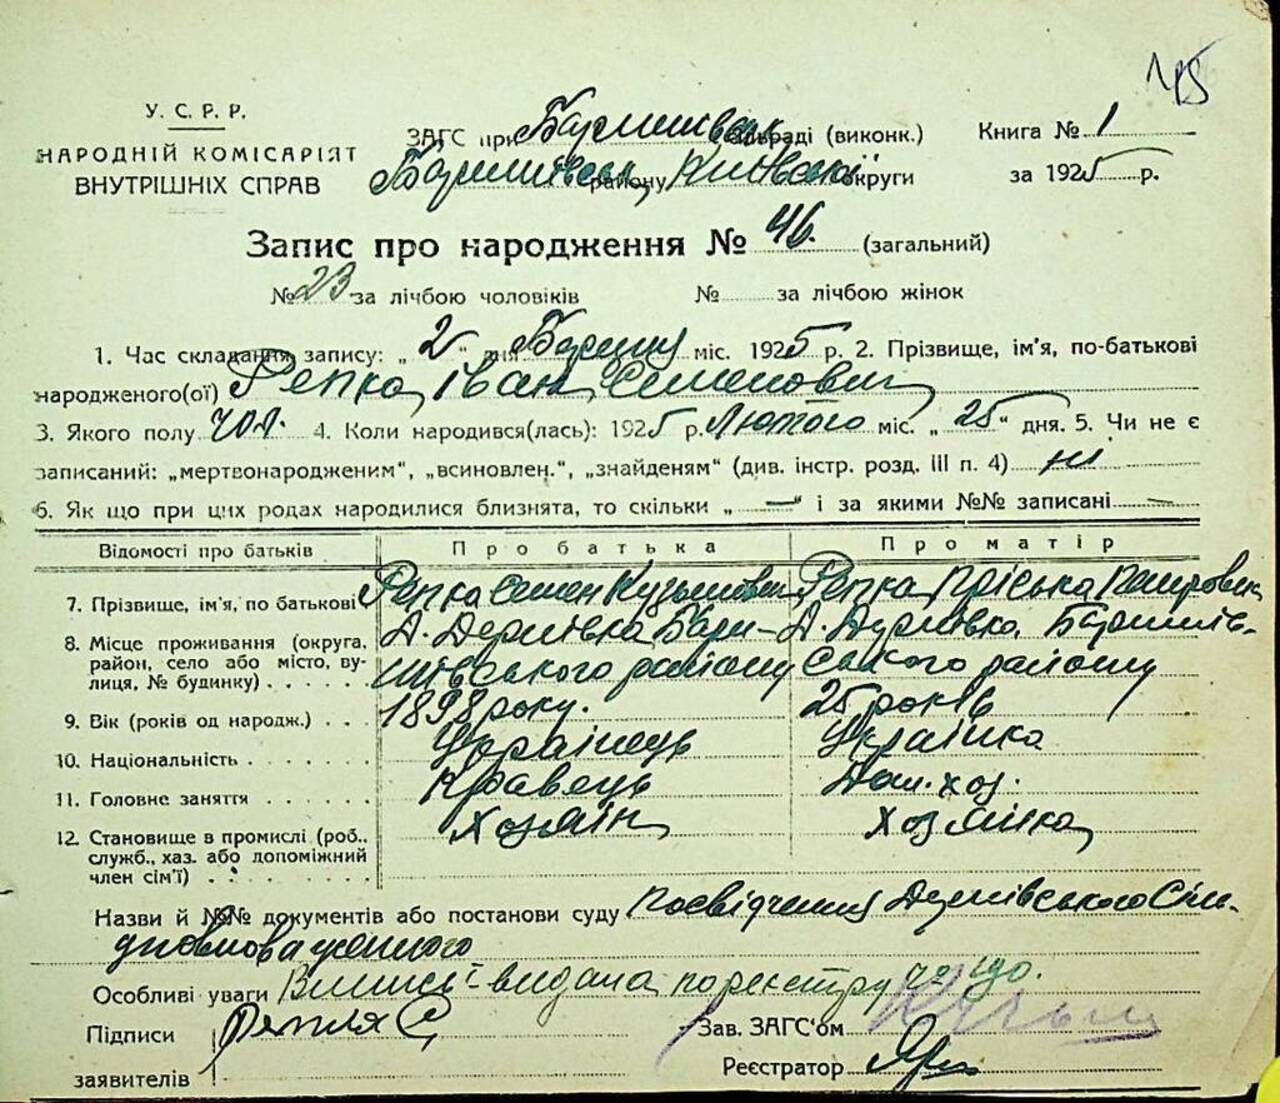 У. С. Р. Р.
НАРОДНІЙ КОМІСАРІЯТ
ВНУТРІШНІХ СПРАВ
ЗАГС при Баришівськ сільраді (виконк.)
Баришівськ району Київської округи
Книга № 1
за 1925 р.
Запис про народження № 46. (загальний)
№ 23 за лічбою чоловіків № за лічбою жінок
1. Час складання запису: „ 2 “ дня міс. 1925 р. 2. Прізвище, ім'я, по-батькові
народженого(ої) Репка Іван Семенович
3. Якого полу чол. 4. Коли народився(лась): 1925 р. Лютого міс. „ 25 “ дня. 5. Чи не є
записаний: „мертвонародженим“, „всиновлен.“, „знайденям“ (див. інстр. розд. III п. 4) ні
6. Як що при цих родах народилися близнята, то скільки „ — “ і за якими №№ записані —
Відомості про батьків Про батька Про матір
7. Прізвище, ім'я, по батькові Репка Семен Кузьмович Репка Пріська Петровн
8. Місце проживання (округа, район, село або місто, вулиця, № будинку) Д. Дернівка Бари-
шівського району Д. Дернівка Баришів-
ського району
9. Вік (років од народж.) 1898 року. 25 років
10. Національність Українець Українка
11. Головне заняття Кравець Дом. хоз.
12. Становище в промислі (роб., служб., хаз. або допоміжний член сім'ї) Хозяїн Хозяйка
Назви й №№ документів або постанови суду Посвідчення Дернівського Сіль-
уповноваженного
Особливі уваги Випись видана по реєстру
Підписи
заявителів
Зав. ЗАГС'ом
Реєстратор